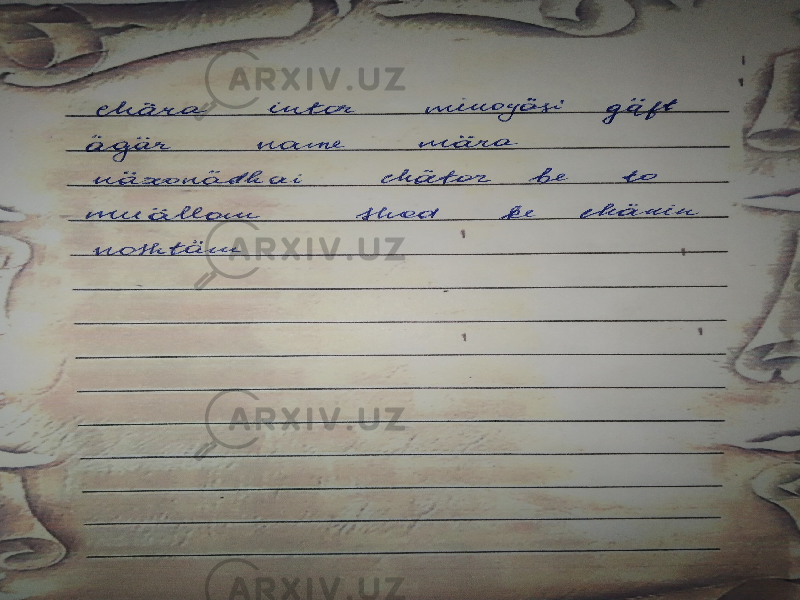 chära intor minoyäsi gäft
ägär name mära
näxonädhai chätor be to
muällom shod ke chänin
noshtäm
ARXIV.UZ
ARXIV.UZ
ARXIV.UZ
ARXIV.UZ